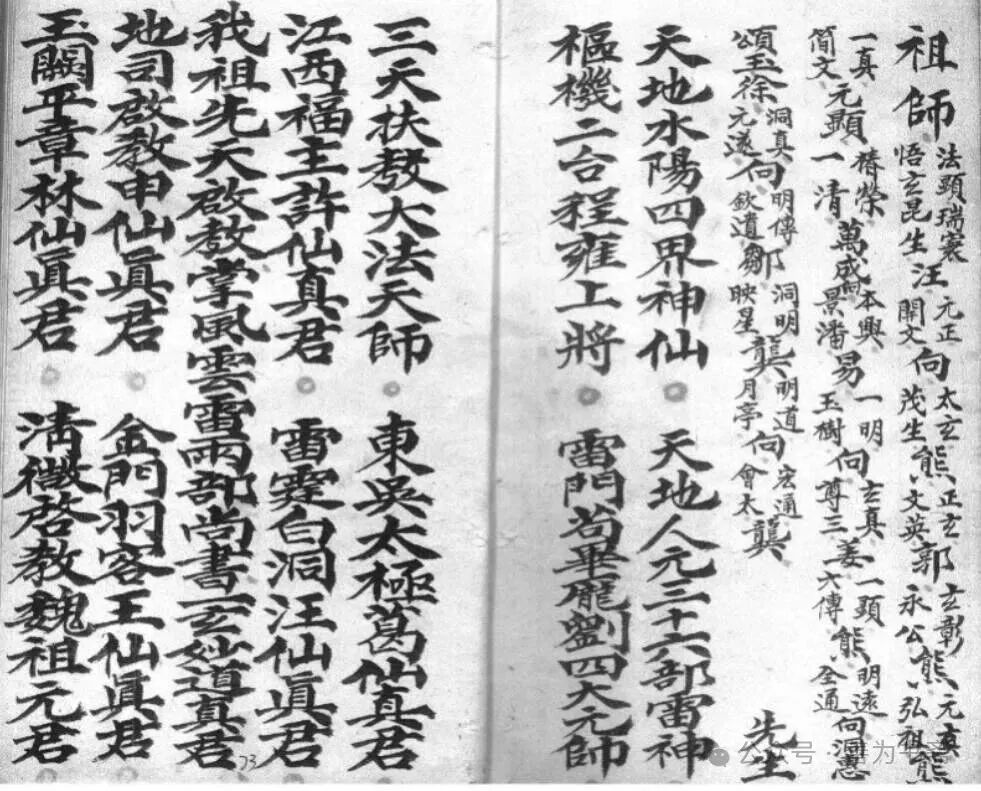 祖師 法顕瑞寰 悟玄昆生 汪 元正 開文 向 太玄 茂生 熊 正玄 文英 郭 玄彰 永公 熊 元真 弘祖 熊
一真 簡文 元顕 椿榮 一清 萬成 本興 景潘 易 一明 玉樹 向 玄真 尊三 姜 一顕 六傳 熊 明遠 全通 向 洞憲
頌玉 徐 洞真 元遂 向 明傳 欽遺 鄒 洞明 映星 龔 明道 月亭 向 宏通 會太 龔 先生
天地水陽四界神仙 天地人元三十六部雷神
樞機二台程雍上將 雷門苟畢龐劉四大元帥
三天扶教大法天師 東吳太極葛仙真君
江西福主許仙真君 雷霆白洞汪仙真君
我祖先天啟教掌風雲雷雨部尚書玄妙道真君
地司啟教申仙真君 金門羽客王仙真君
玉闕平章林仙真君 清微啓教魏祖元君
73
公众号